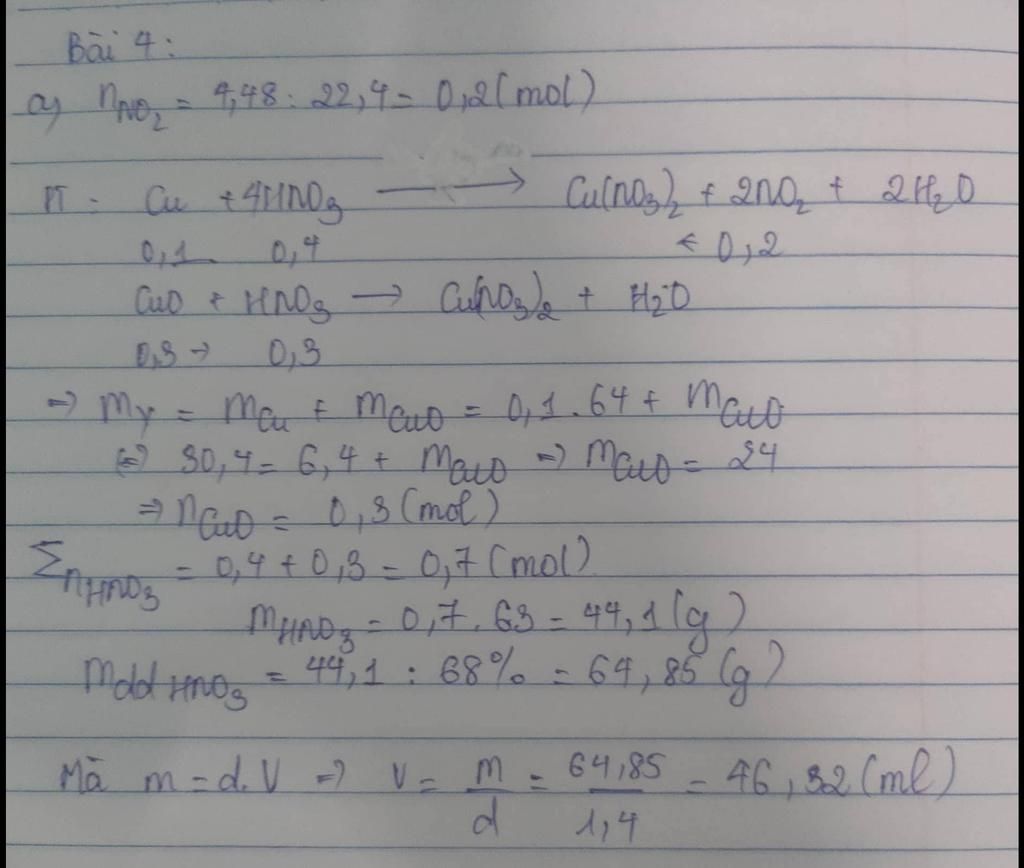 Bài 4:
a) nNO₂ = 4,48 : 22,4 = 0,2 (mol)
PT : Cu + 4HNO₃ → Cu(NO₃)₂ + 2NO₂ + 2H₂O
0,1 0,4 ← 0,2
CuO + HNO₃ → Cu(NO₃)₂ + H₂O
0,3 → 0,3
⇒ mY = mCu + mCuO = 0,1 . 64 + mCuO
⇔ 30,4 = 6,4 + mCuO ⇒ mCuO = 24
⇒ nCuO = 0,3 (mol)
ΣnHNO₃ = 0,4 + 0,3 = 0,7 (mol)
mHNO₃ = 0,7 . 63 = 44,1 (g)
mdd HNO₃ = 44,1 : 68% = 64,85 (g)
Mà m = d.V ⇒ V = m/d = 64,85/1,4 = 46,32 (ml)